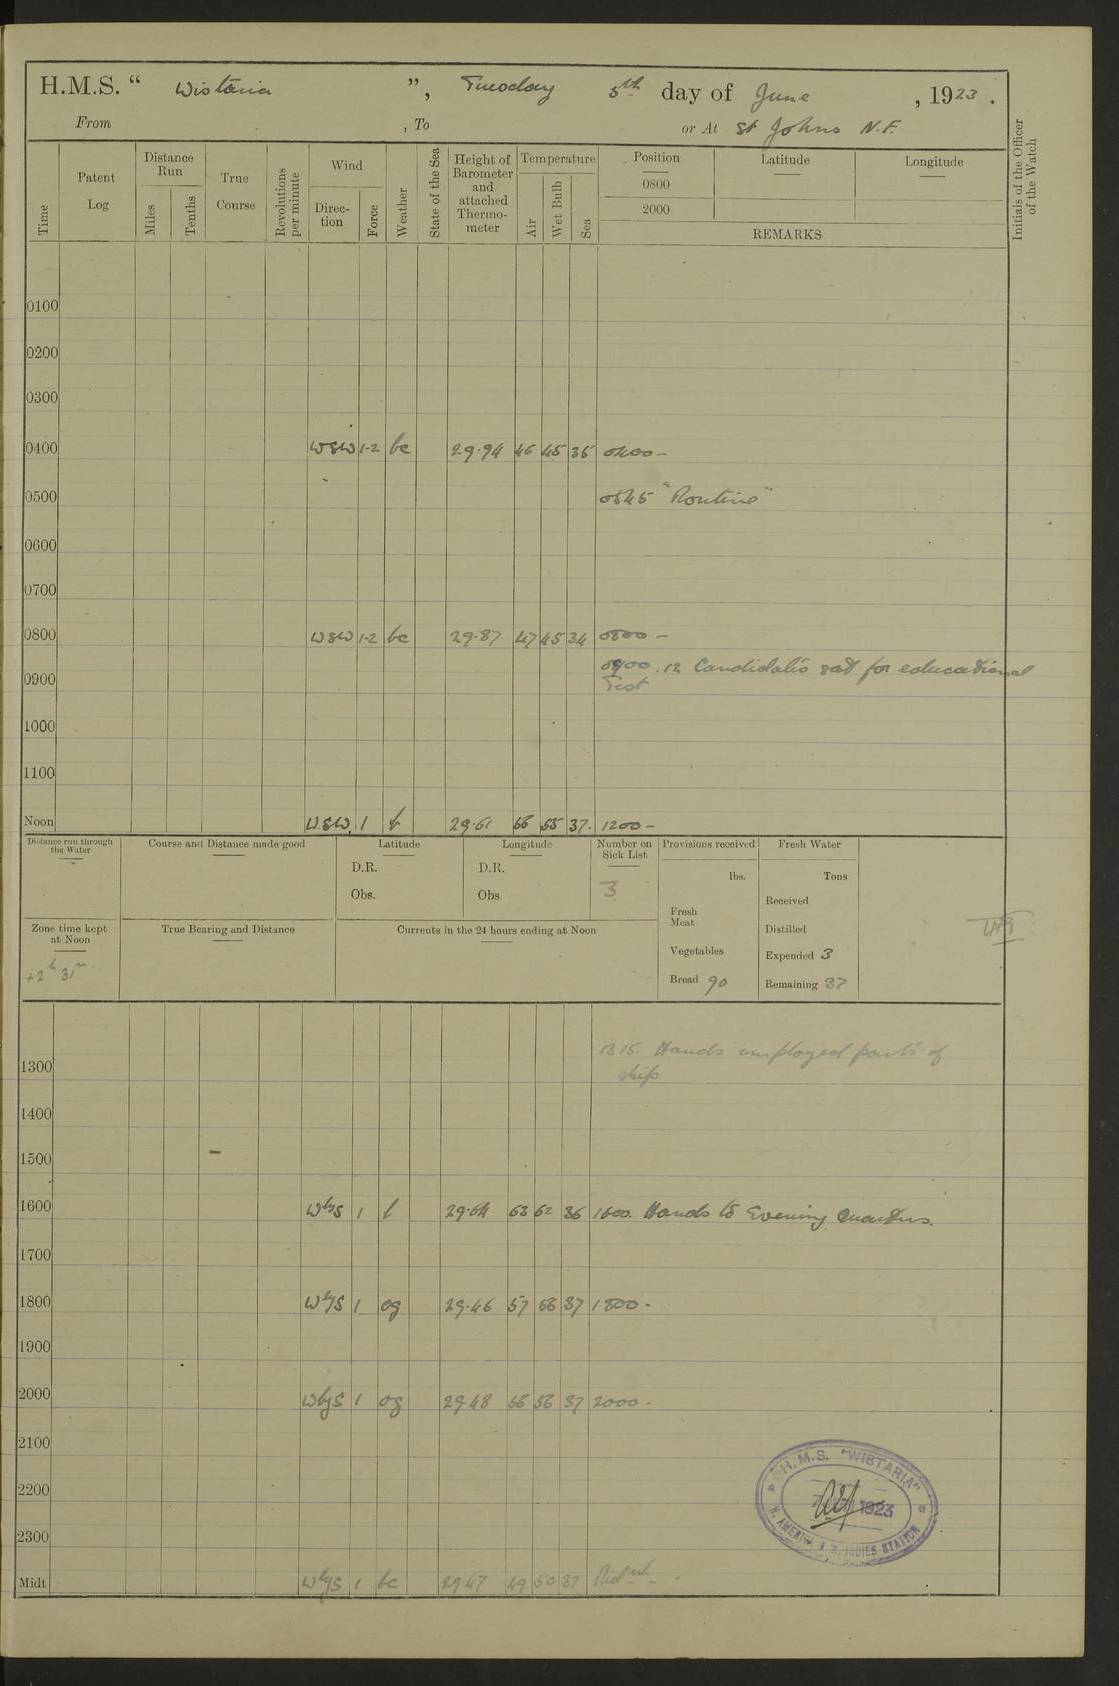 H.M.S. “ Wistaria ”, Tuesday 5th day of June, 1923.
From , To or At St Johns N.F.
Time Patent Log Distance Run Miles Tenths True Course Revolutions per minute Wind Direc-tion Force Weather State of the Sea Height of Barometer and attached Thermo-meter Temperature Air Wet Bulb Sea Position Latitude Longitude
0800
2000
REMARKS
Initials of the Officer of the Watch
0100
0200
0300
0400 WSW 1-2 bc 29.94 46 45 35 0400 –
0500 0545 "Routine"
0600
0700
0800 WSW 1-2 bc 29.87 47 45 34 0800 –
0900 0900. 12 Candidates sat for educational
Test
1000
1100
Noon WSW 1 b 29.61 56 55 37. 1200 –
Distance run through the Water
Course and Distance made good
Latitude
D.R.
Obs.
Longitude
D.R.
Obs
Number on Sick List
3
Provisions received
lbs.
Fresh Meat
Vegetables
Bread 90
Fresh Water
Tons
Received
Distilled
Expended 3
Remaining 37
Zone time kept at Noon
+2h 31m
True Bearing and Distance
Currents in the 24 hours ending at Noon
1315. Hands employed parts of
1300 ship
1400
1500
1600 WbyS 1 b 29.54 63 62 36 1600. Hands to Evening Quarters.
1700
1800 WbyS 1 og 29.46 57 56 37 1800 -
1900
2000 WbyS 1 og 29.48 56 56 37 2000 -
2100
2200
2300
Midt WbyS 1 bc 29.47 49 50 37 Midnt -
H.M.S. "WISTARIA"
1923
N. AMERICA & W. INDIES STATION